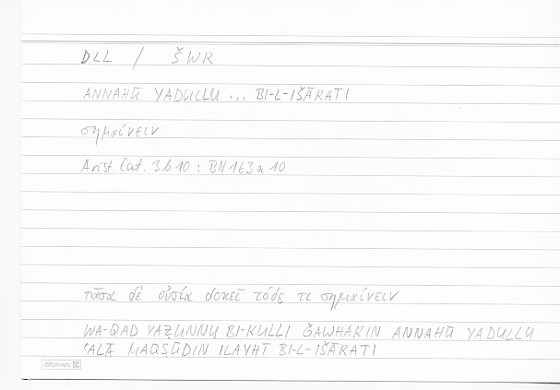 DLL / ŠWR
ANNAHŪ YADULLU ... BI-L-IŠĀRATI
σημαίνειν
Arist. Cat. 3 b 10 : BN 163 a 10
πᾶσα δὲ οὐσία δοκεῖ τόδε τι σημαίνειν
WA-QAD YAẒUNNU BI-KULLI ǦAWHARIN ANNAHŪ YADULLU
ʿALĀ MAQṢŪDIN ILAYHĪ BI-L-IŠĀRATI